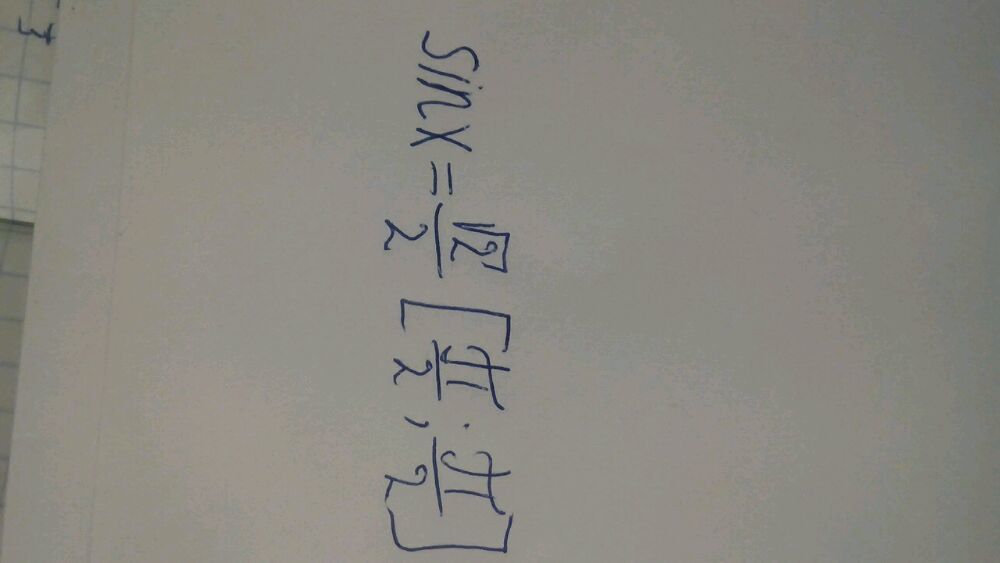 sin x = √2/2 [π/2 ; π/2]